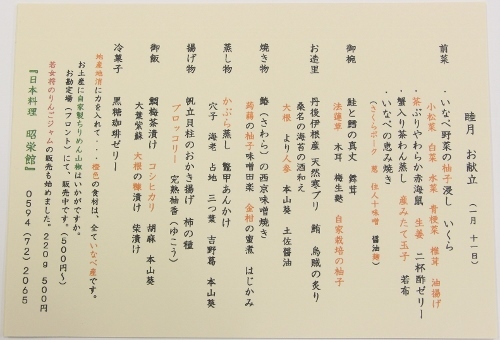 睦月 お献立 (一月 十一日)
前菜 ・いなべ野菜の柚子浸し いくら
小松菜 白菜 水菜 青梗菜 椎茸 油揚げ
・茶ぶりやわらか赤海鼠 生姜 二杯酢ゼリー
・蟹入り茶わん蒸し 産みたて玉子 若布
・いなべの恵み焼き
(さくらポーク 葱 住人十味噌 醤油麹)
御椀 鮭と鱈の真丈 舞茸
法蓮草 木耳 梅生麩 自家栽培の柚子
お造里 丹後伊根産 天然寒ブリ 鮪 烏賊の炙り
桑名の海苔の酒和え
大根 より人参 本山葵 土佐醤油
焼き物 鰆(さわら)の西京味噌焼き
蒟蒻の柚子味噌田楽 金柑の蜜煮 はじかみ
蒸し物 かぶら蒸し 鼈甲あんかけ
穴子 海老 占地 三つ葉 吉野葛 本山葵
揚げ物 帆立貝柱のおかき揚げ 柿の種
ブロッコリー 完熟柚香(ゆこう)
御飯 鯛梅茶漬け コシヒカリ 胡麻 本山葵
大葉紫蘇 大根の糠漬け 柴漬け
冷菓子 黒糖珈琲ゼリー
地産地消に力を入れて・・橙色の食材は、全ていなべ産です。
お土産に自家製ちりめん山椒はいかがですか。
お勘定場(フロント)にて、販売中です。(500円~)
若女将のりんごジャムの販売も始めました。220g 500円
『日本料理 昭栄館』 0594(72)2065